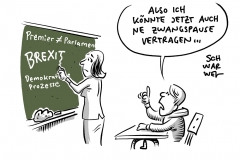 Premier ≠ Parlament
BREXIT
Demokrat.
Prozesse
ALSO ICH
KÖNNTE JETZT AUCH
NE ZWANGSPAUSE
VERTRAGEN...
SCH
WAR
WEL